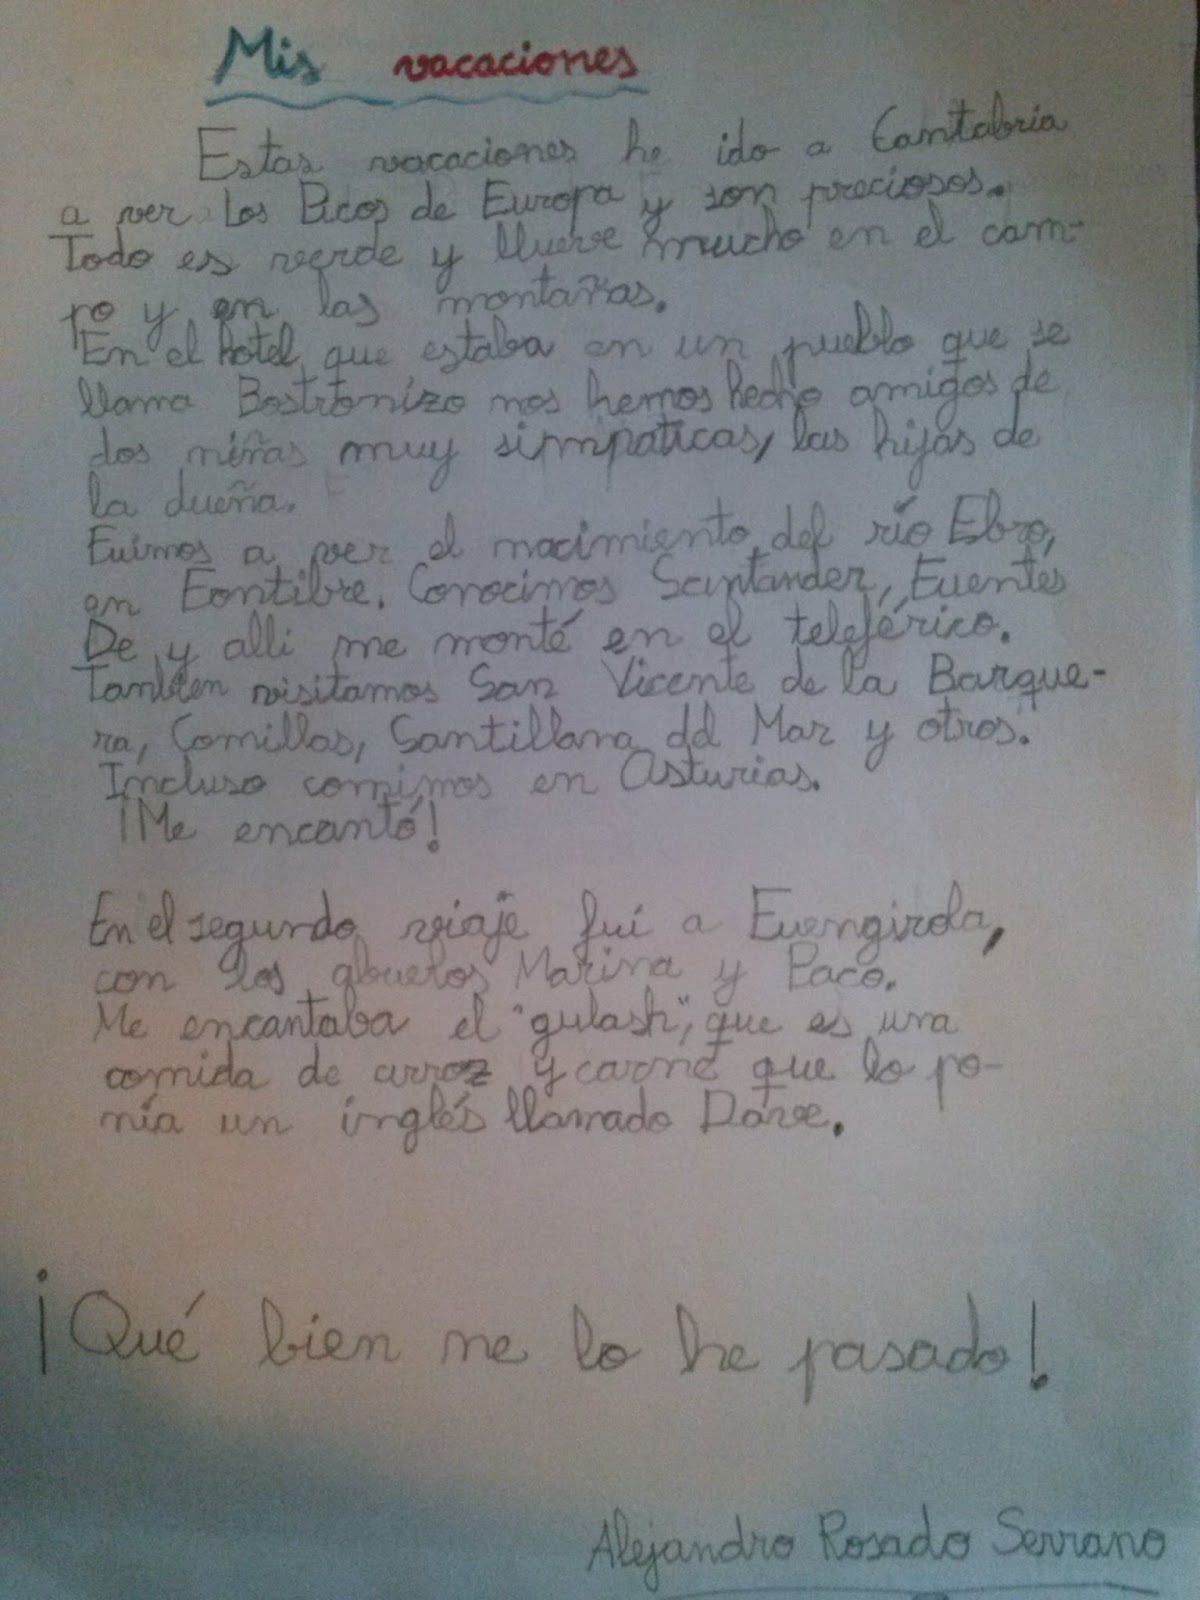 Mis vacaciones
Estas vacaciones he ido a Cantabria
a ver los Picos de Europa y son preciosos.
Todo es verde y llueve mucho en el cam-
po y en las montañas.
En el hotel, que estaba en un pueblo que se
llama Bostronizo nos hemos hecho amigos de
dos niñas muy simpaticas, las hijas de
la dueña.
Fuimos a ver el nacimiento del río Ebro,
en Fontibre. Conocimos Santander, Fuentes
De y alli me monté en el teleférico.
Tambien visitamos San Vicente de la Barque-
ra, Comillas, Santillana del Mar y otros.
Incluso comimos en Asturias.
¡Me encantó!
En el segundo viaje fui a Fuengirola,
con los abuelos Marina y Paco.
Me encantaba el "gulash", que es una
comida de arroz y carne que lo po-
nía un inglés llamado Dave.
¡Qué bien me lo he pasado!
Alejandro Rosado Serrano